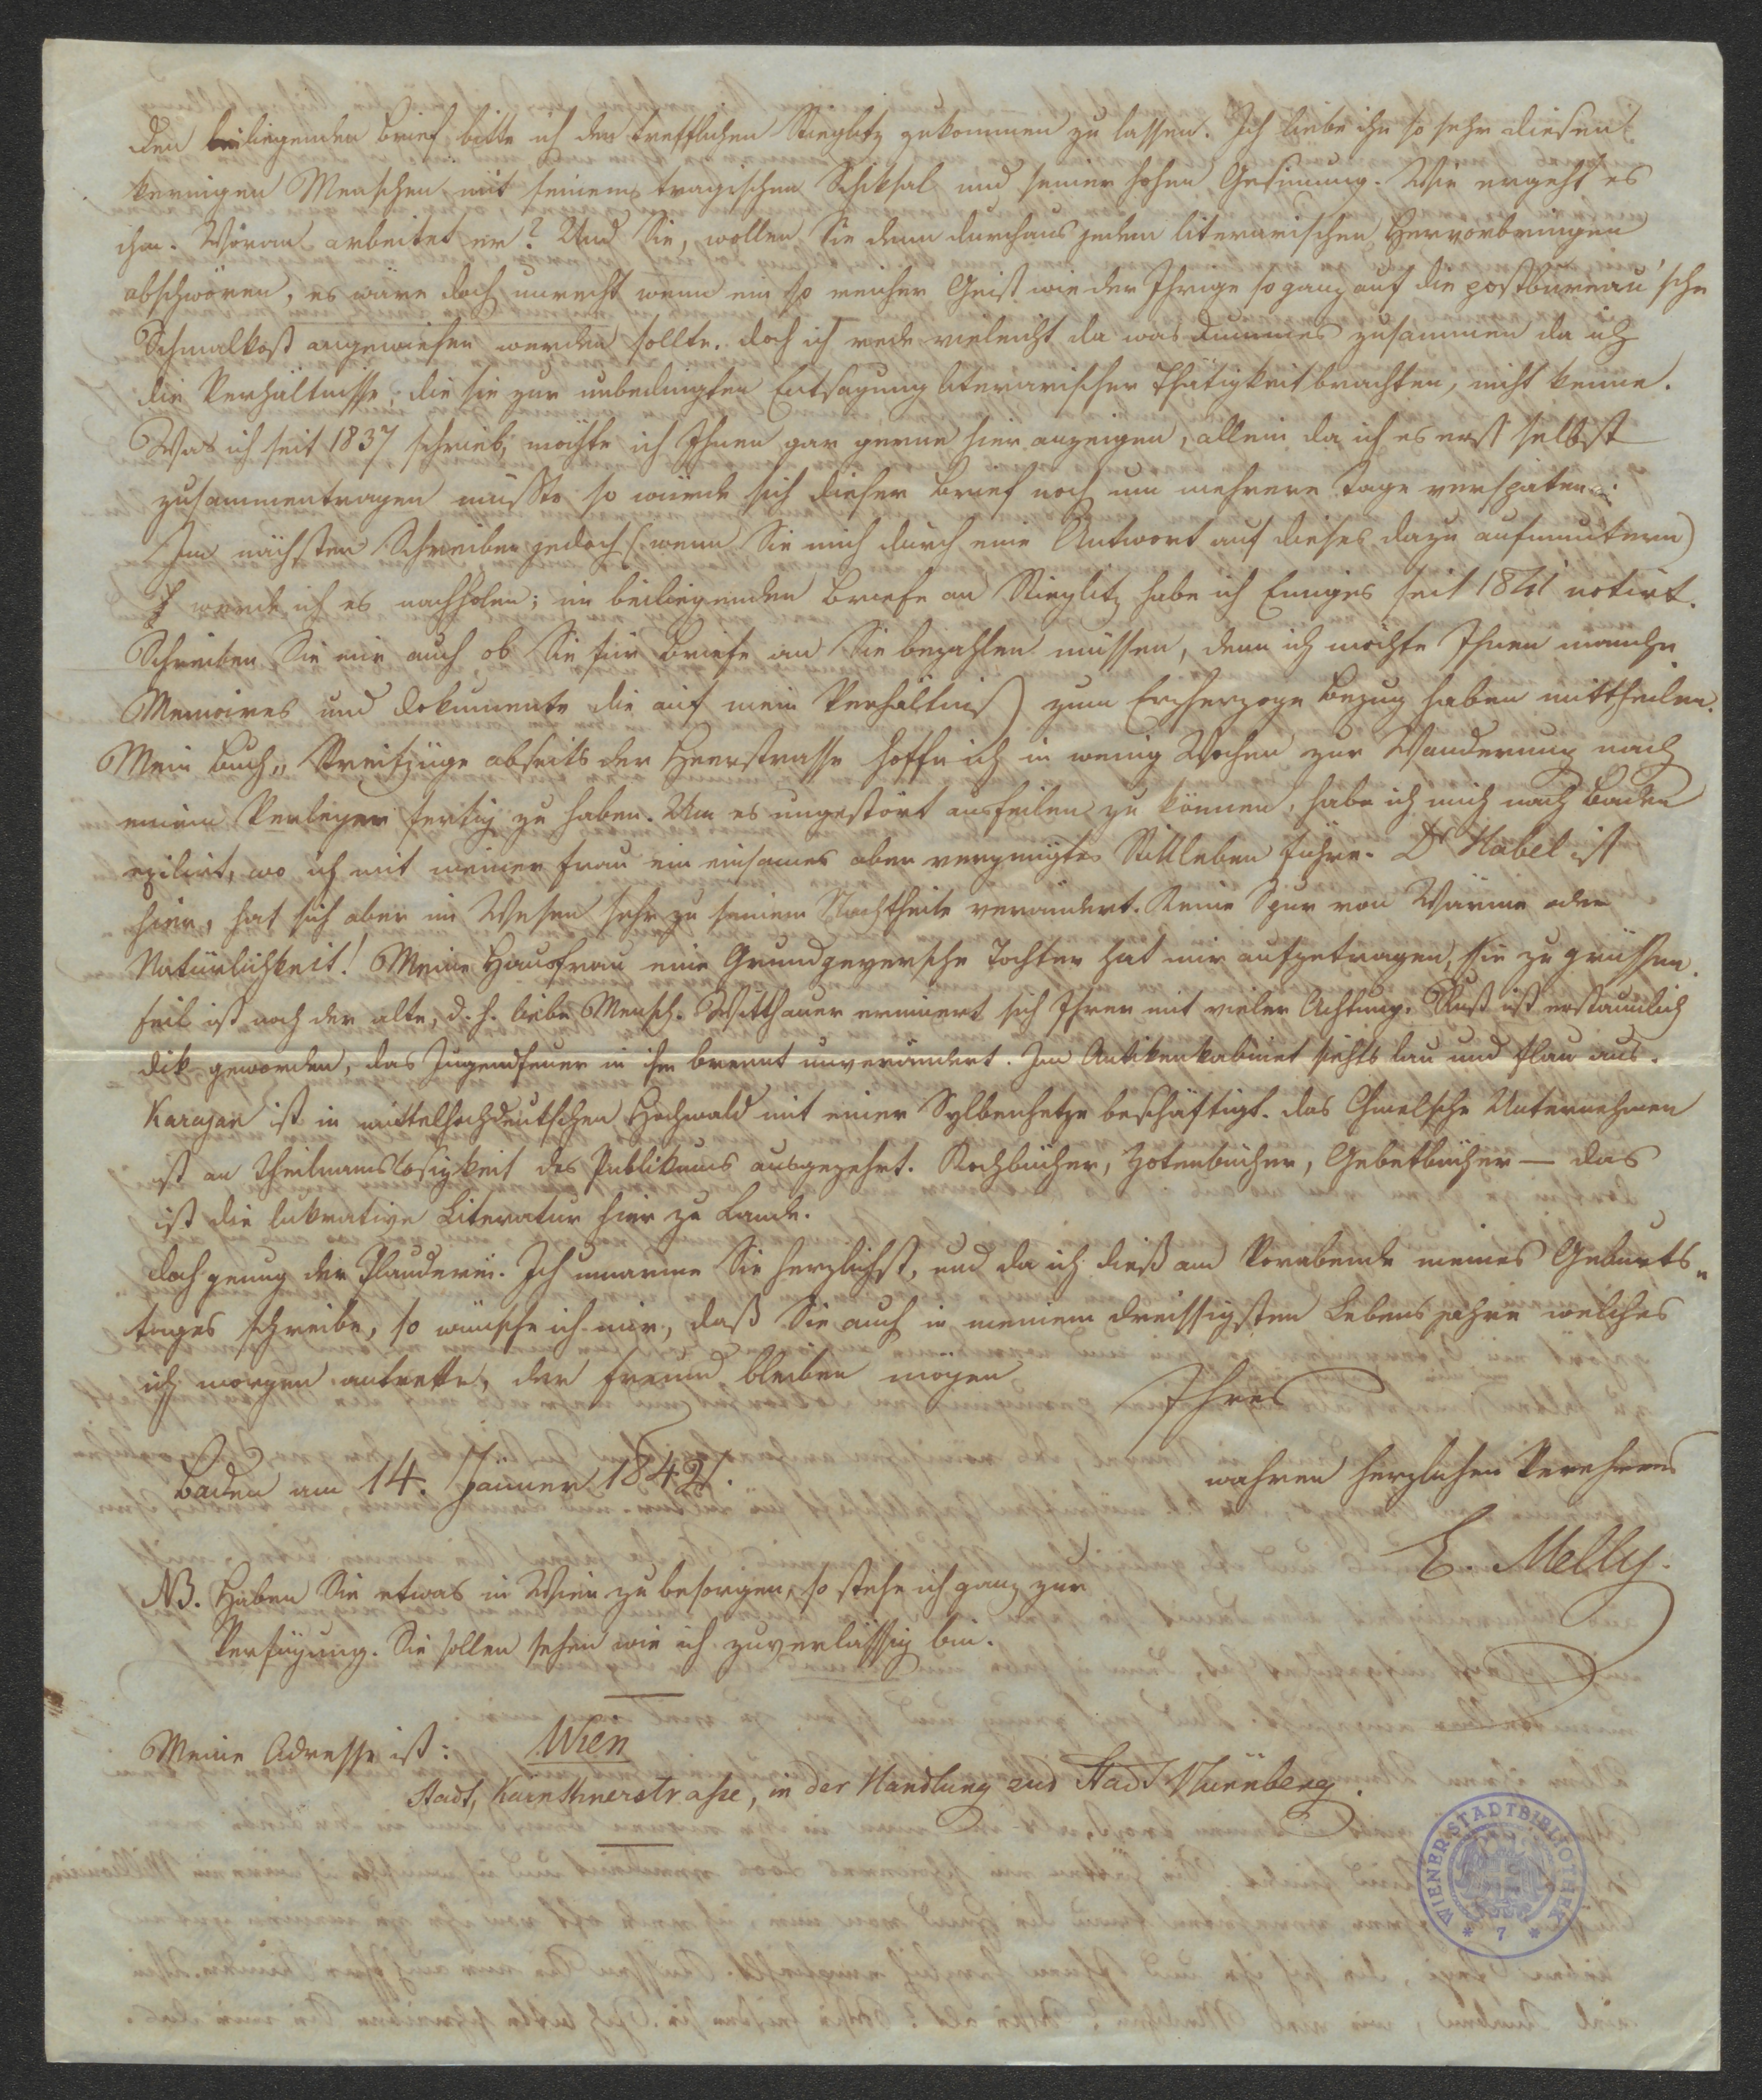 Den beiliegenden Brief bitte ich dem trefflichen Stieglitz zukommen zu lassen. Ich liebe ihn so sehr diesen
kernigen Menschen mit seinem tragischen Schiksal und seiner hohen Gesinnung. Wie ergeht es
ihm. Woran arbeitet er? Und Sie, wollen Sie denn durchaus jedem literarischen Hervorbringen
abschwören, es wäre doch unrecht wenn ein so reicher Geist wie der Ihrige so ganz auf die postbureau'sche
Schmalkost angewiesen werden sollte. Doch ich rede vieleicht da was dummes zusammen da ich
die Verhältnisse, die sie zur unbedingten Entsagung literarischer Thätigkeit brachten, nicht kenne.
Was ich seit 1837 schrieb, möchte ich Ihnen gar gerne hier anzeigen, allein da ich es erst selbst
zusammentragen müsste so würde sich dieser Brief noch um mehrere Tage verspäten.
Im nächsten Schreiben jedoch (wenn Sie mich durch eine Antwort auf dieses dazu aufmuntern)
werde ich es nachholen; im beiliegenden Briefe an Stieglitz habe ich Einiges seit 1841 notirt.
Schreiben Sie mir auch ob Sie für Briefe an Sie bezahlen müssen, denn ich möchte Ihnen manche
Memoires und Dokumente die auf mein Verhältniß zum Erzherzoge Bezug haben mittheilen.
Mein Buch „ Streifzüge abseits der Heerstrasse hoffe ich in wenig Wochen zur Wanderung nach
einem Verleger fertig zu haben. Um es ungestört ausfeilen zu können, habe ich mich nach Baden
exilirt, wo ich mit meiner Frau ein einsames aber vergnügtes Stillleben führe. Dr Habel ist
hier, hat sich aber im Wesen sehr zu seinem Nachtheile verändert. Keine Spur von Wärme oder
Natürlichkeit! Meine Hausfrau eine Grundgeyersche Tochter hat mir aufgetragen, Sie zu grüssen.
Feil ist noch der alte, d. h. liebe Mensch. Witthauer erinnert sich Ihrer mit vieler Achtung. Rust ist erstaunlich
dik geworden, das Jugendfeuer in ihm brennt unverändert. Im Antikenkabinet siehts lau und flau aus.
Karajan ist in mittelhochdeutschen Hochwald mit einer Sylbenhetze beschäftigt. Das Chmelsche Unternehmen
ist an Theilnamslosigkeit des Publikums ausgezehrt. Kochbücher, Zotenbücher, Gebetbücher — das
ist die lukrative Literatur hier zu Lande.
Doch genug der Plauderei. Ich umarme Sie herzlichst, und da ich dieß am Vorabende meines Geburts„
tages schreibe, so wünsche ich mir, daß Sie auch in meinem dreissigsten Lebensjahre welches
ich morgen antrette, der Freund bleiben mögen
Ihres
Baden am 14. Jänner 1842.
wahren herzlichen Verehrers
E. Melly.
NB. Haben Sie etwas in Wien zu besorgen, so stehe ich ganz zur
Verfügung. Sie sollen sehen wie ich zuverlässig bin.
Meine Adresse ist: Wien
Stadt, Kärnthnerstraße, in der Handlung zur Stadt Nürnberg.
WIENER STADTBIBLIOTHEK
* 7 *